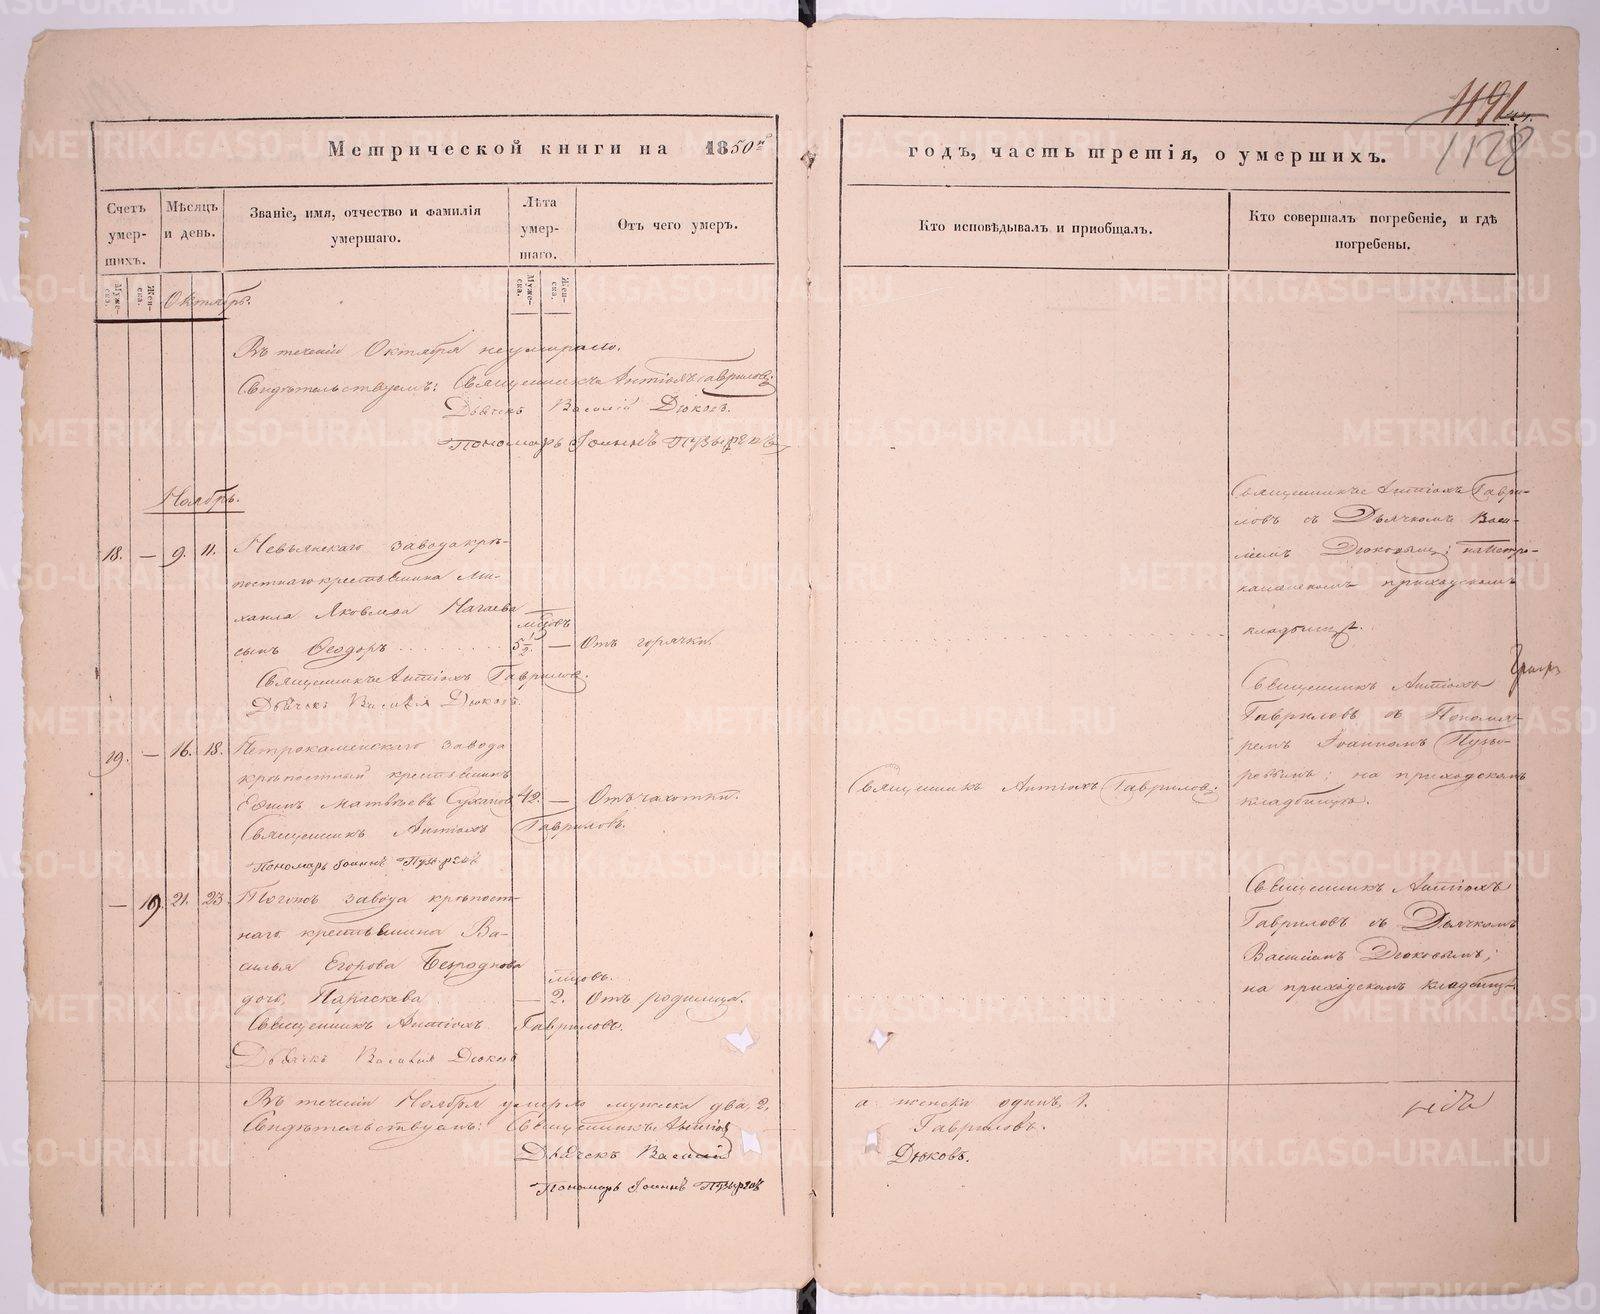 1191
1128
Метрической книги на 1850й
годъ, часть третія, о умершихъ.
Счетъ умер-
шихъ.
Мѣсяцъ
и день.
Званіе, имя, отчество и фамилія
умершаго.
Лѣта
умер-
шаго.
Отъ чего умеръ.
Кто исповѣдывалъ и приобщалъ.
Кто совершалъ погребеніе, и гдѣ
погребены.
Муже-
ска.
Жен-
ска.
Муже-
ска.
Жен-
ска.
Октябрь.
Въ теченіи Октября неумирало.
Свидѣтельствуемъ: Священникъ Антіохъ Гавриловъ.
Дьячекъ Василій Дюковъ.
Пономарь Іоаннъ Пузыревъ
Ноябрь.
18. — 9. 11.
Невьянскаго завода крѣ-
постнаго крестьянина Ми-
хаила Яковлева Нагаева
сынъ Ѳеодоръ
мцовъ
5 1/2. — Отъ горячки.
Священникъ Антіохъ Гавриловъ.
Дьячекъ Василій Дюковъ.
Священникъ Антіохъ Гаври-
ловъ съ Дьячкомъ Васи-
ліемъ Дюковымъ; на Петро-
каменскомъ приходскомъ
кладбищѣ.
19. — 16. 18.
Петрокаменскаго завода
крѣпостный крестьянинъ
Ефимъ Матвѣевъ Сухановъ
42. — Отъ чахотки.
Священникъ Антіохъ Гавриловъ.
Пономарь Іоаннъ Пузыревъ
Священникъ Антіохъ Гавриловъ.
Священникъ Антіохъ
Гавриловъ съ Понома-
ремъ Іоанномъ Пузы-
ревымъ; на приходскомъ
кладбищѣ.
— 19. 21. 23.
Тогожъ завода крѣпост-
наго крестьянина Ва-
силья Егорова
дочь Параскева
мцовъ.
— 2. Отъ родимца.
Священникъ Антіохъ Гавриловъ.
Дьячекъ Василій Дюковъ
Священникъ Антіохъ
Гавриловъ съ Дьячкомъ
Василіемъ Дюковымъ;
на приходскомъ кладбищѣ
Въ теченіи Ноября умерло мужеска два, 2,
а женска одинъ, 1.
Свидѣтельствуемъ: Священникъ Антіохъ
Гавриловъ.
Дьячекъ Василій
Дюковъ.
Пономарь Іоаннъ Пузыревъ
METRIKI.GASO-URAL.RU